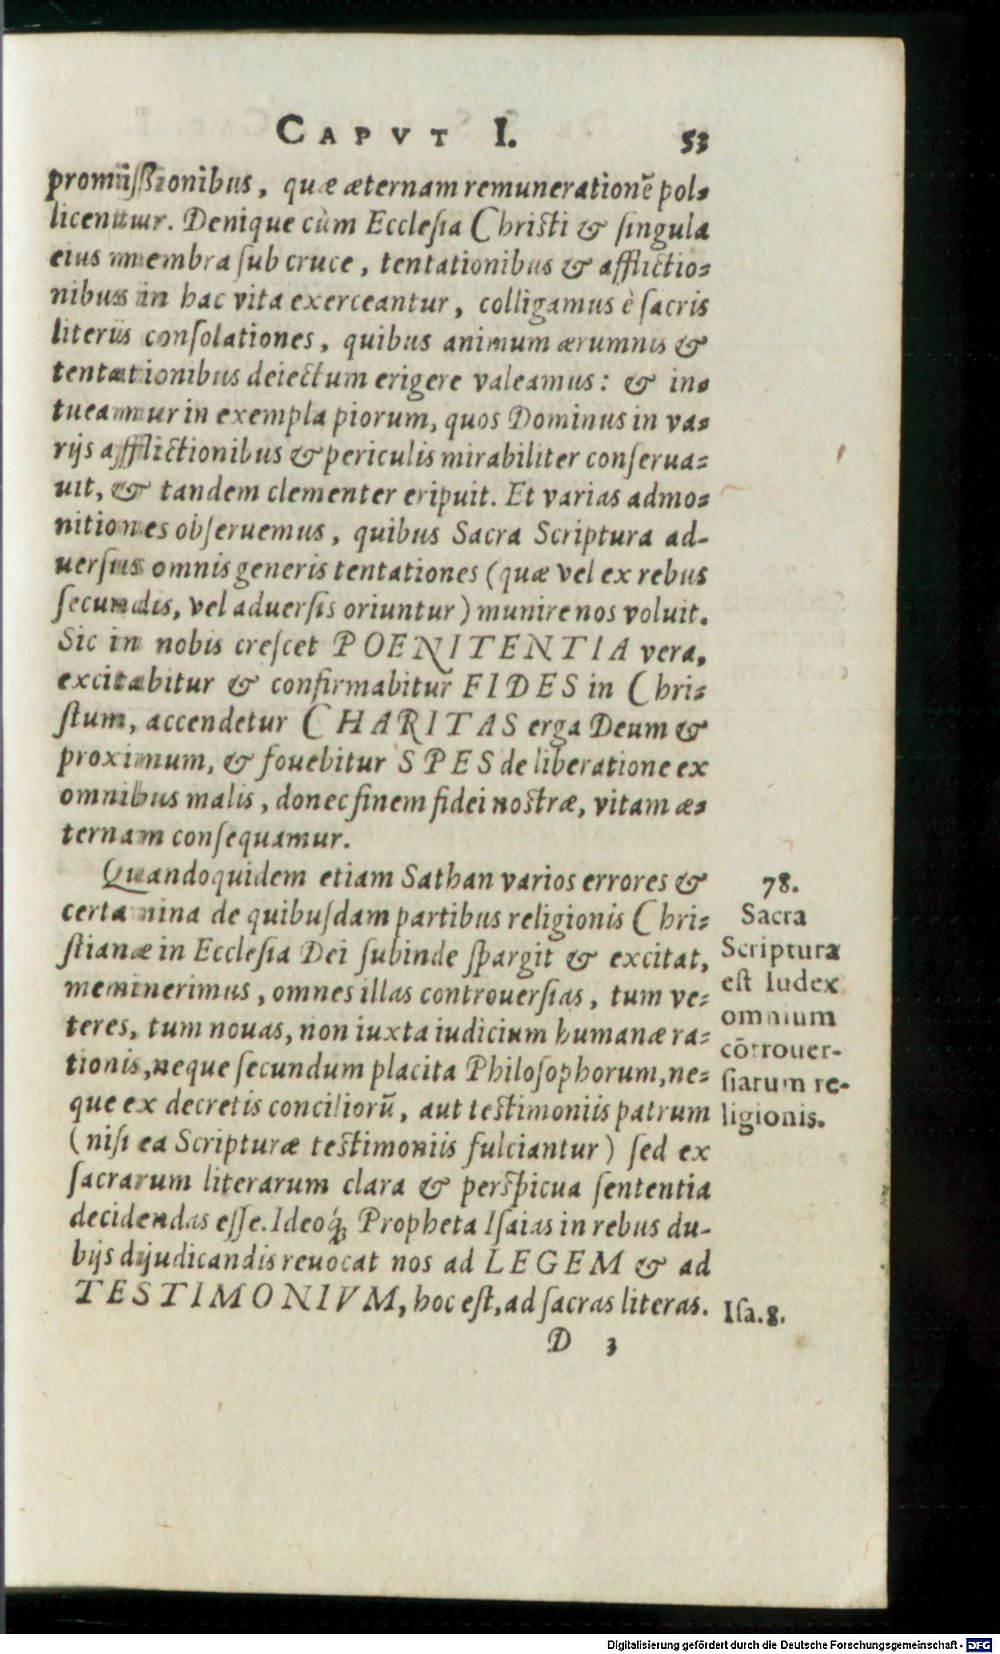 CAPVT I. 53
promißionibus, quæ æternam remunerationē pol-
licentur. Denique cùm Ecclesia Christi & singula
eius membra sub cruce, tentationibus & afflictio-
nibus in hac vita exerceantur, colligamus è sacris
literis consolationes, quibus animum ærumnis &
tentationibus deiectum erigere valeamus: & in-
tueamur in exempla piorum, quos Dominus in va-
rijs afflictionibus & periculis mirabiliter conserua-
uit, & tandem clementer eripuit. Et varias admo-
nitiones obseruemus, quibus Sacra Scriptura ad-
uersus omnis generis tentationes (quæ vel ex rebus
secundis, vel aduersis oriuntur) munire nos voluit.
Sic in nobis crescet POENITENTIA vera,
excitabitur & confirmabitur FIDES in Chri-
stum, accendetur CHARITAS erga Deum &
proximum, & fouebitur SPES de liberatione ex
omnibus malis, donec finem fidei nostræ, vitam æ-
ternam consequamur.
Quandoquidem etiam Sathan varios errores &
certamina de quibusdam partibus religionis Chri-
stianæ in Ecclesia Dei subinde spargit & excitat,
meminerimus, omnes illas controuersias, tum ve-
teres, tum nouas, non iuxta iudicium humanæ ra-
tionis, neque secundum placita Philosophorum, ne-
que ex decretis conciliorū, aut testimoniis patrum
(nisi ea Scripturæ testimoniis fulciantur) sed ex
sacrarum literarum clara & perspicua sententia
decidendas esse. Ideoq́; Propheta Isaias in rebus du-
bijs dijudicandis reuocat nos ad LEGEM & ad
TESTIMONIVM, hoc est, ad sacras literas.
D 3
78.
Sacra
Scriptura
est Iudex
omnium
cōtrouer-
siarum re-
ligionis.
Isa. 8.
Digitalisierung gefördert durch die Deutsche Forschungsgemeinschaft - DFG